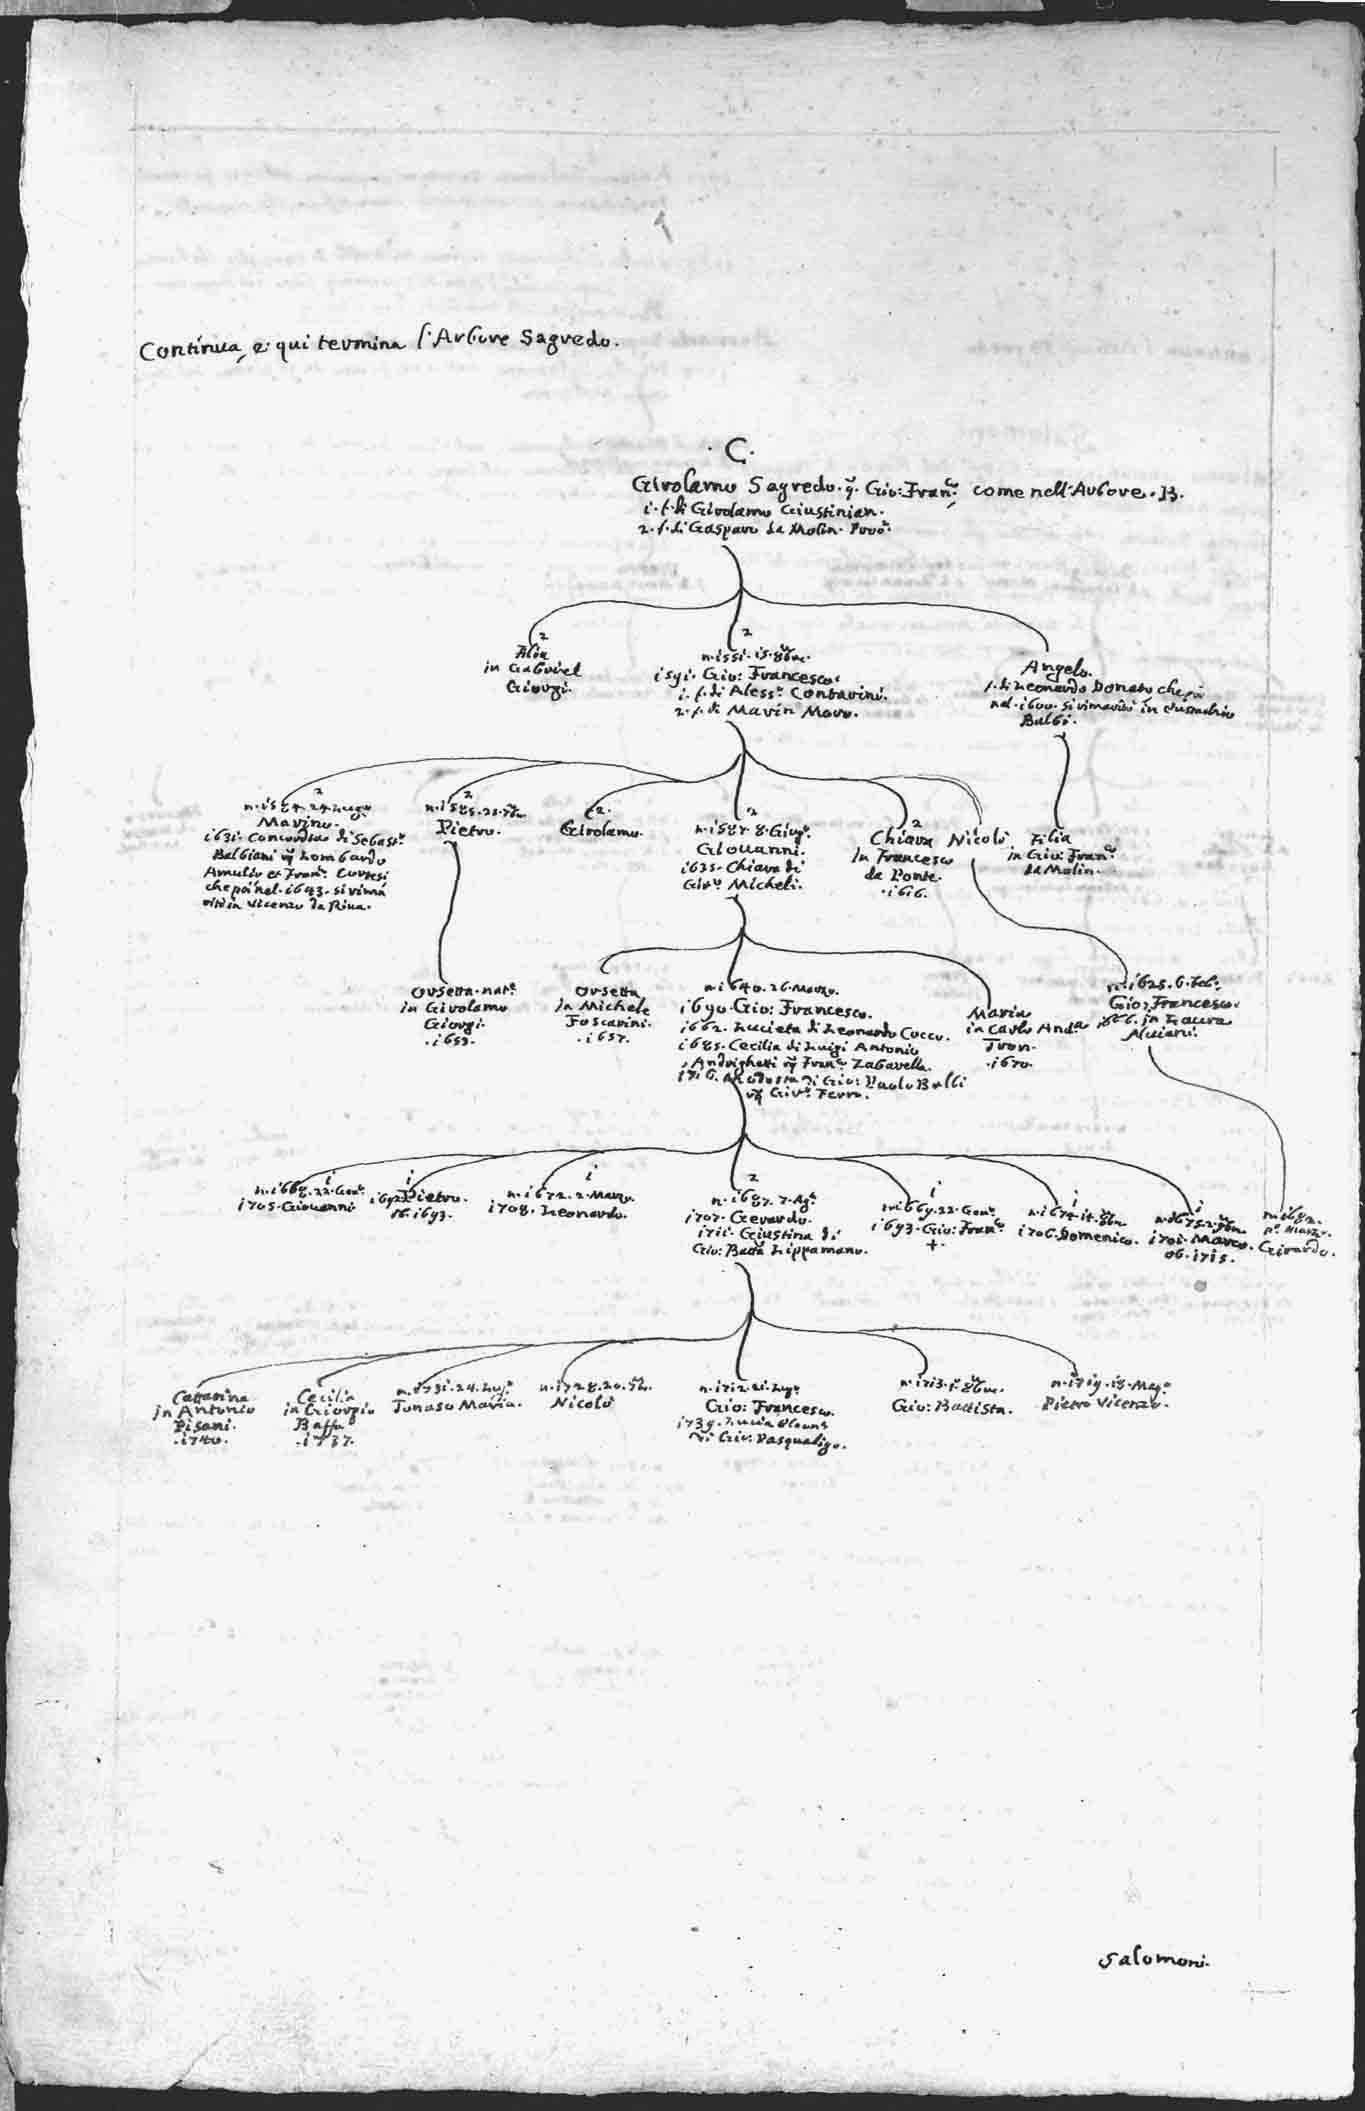 Continua, e qui termina l'Arbore Sagredo.
C.
Girolamo Sagredo. q. Gio: Franco. come nell'Arbore. B.
i. f. di Girolamo Giustinian.
2. f. di Gasparo da Molin. Procr.
2
in Gabriel
Giorgi.
2
n. i55i. i5. 8bre.
i59i. Gio: Francesco.
i. f. di Alessº. Contarini.
2. f. di Marin Moro.
Angelo.
f. di Leonardo Donato che poi
nel. i600. si rimaritò in Eustachio
Balbi.
2
n. i584. 24. Lugº.
Marino.
i63i. Concordia di Sebastº.
Balbiani
Arnulfo et Franº. Cortesi
che poi nel. i643. si rima
ritò in Vicenzo da Riva.
2
n. i585. 23. 7bre.
Pietro.
2.
Girolamo.
2
n. i587. 8. Giugº.
Giovanni.
i635. Chiara di
Gioº. Micheli.
2
Chiara
in Francesco
da Ponte.
.i6i6.
Nicolò.
Filia
in Gio: Franco.
da Molin.
Orsetta. natª.
in Girolamo
Giorgi.
.i653.
Orsetta
in Michele
Foscarini.
.i657.
n. i640. 26. Marzo.
i690. Gio: Francesco.
i662. Lucieta di Leonardo Cocco.
i685. Cecilia di Luigi Antonio
Andrighetti Franco. Zabarella.
i7i6. Modesta di Gio: Paolo Balbi
Gioº. Ferro.
Maria
in Carlo Andª
Tron.
.i670.
n. i625. 6. Feb.
Gio: Francesco.
666. in Laura
Alviani.
i
n. i668. 22. Genº.
i705. Giovanni
i
i692. Pietro.
ob. i693.
i
n. i672. 2. Marzo.
i708. Leonardo.
2
n. i687. 7. Agº.
i707. Gerardo.
i7ii. Giustina di
Gio: Battª Lippamano.
i
n. i669. 22. Genº.
i693. Gio: Franco.
+.
i
n. i674. i4. 8bre.
i706. Domenico.
i
n. i675. 2. 8bre.
i70i. Marco.
ob. i7i5.
n. i682.
pº Marzo.
Girardo.
Cattarina
in Antonio
Pisani.
.i740.
Cecilia
in Giorgio
Baffo
.i737.
n. i73i. 24. Lugº.
Tomaso Maria.
n. i728. 20. 7bre.
Nicolò
n. i7i2. 2i. Lugº.
Gio: Francesco.
i739. Lucia Elena
di Gio: Pasqualigo.
n. i7i3. i. 8bre.
Gio: Battista.
n. i7i9. i8. Magº.
Pietro Vicenzo.
Salomoni.